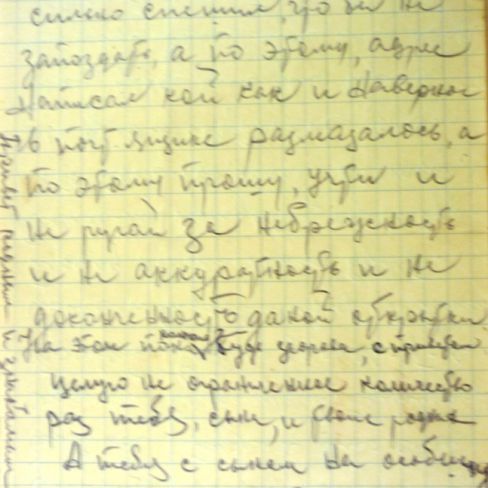 сильно спешил, что бы не
запоздать, а по этому, адрес
написал кой как и наверное
в почт ящике размазалось, а
по этому прошу, учти и
не ругай за небрежность
и не аккуратность и не
доконченность даной открытки
На этом пока буде здорова, с приветом
целую не ограниченное количество
раз тебя, сына, и
А тебя с сынем